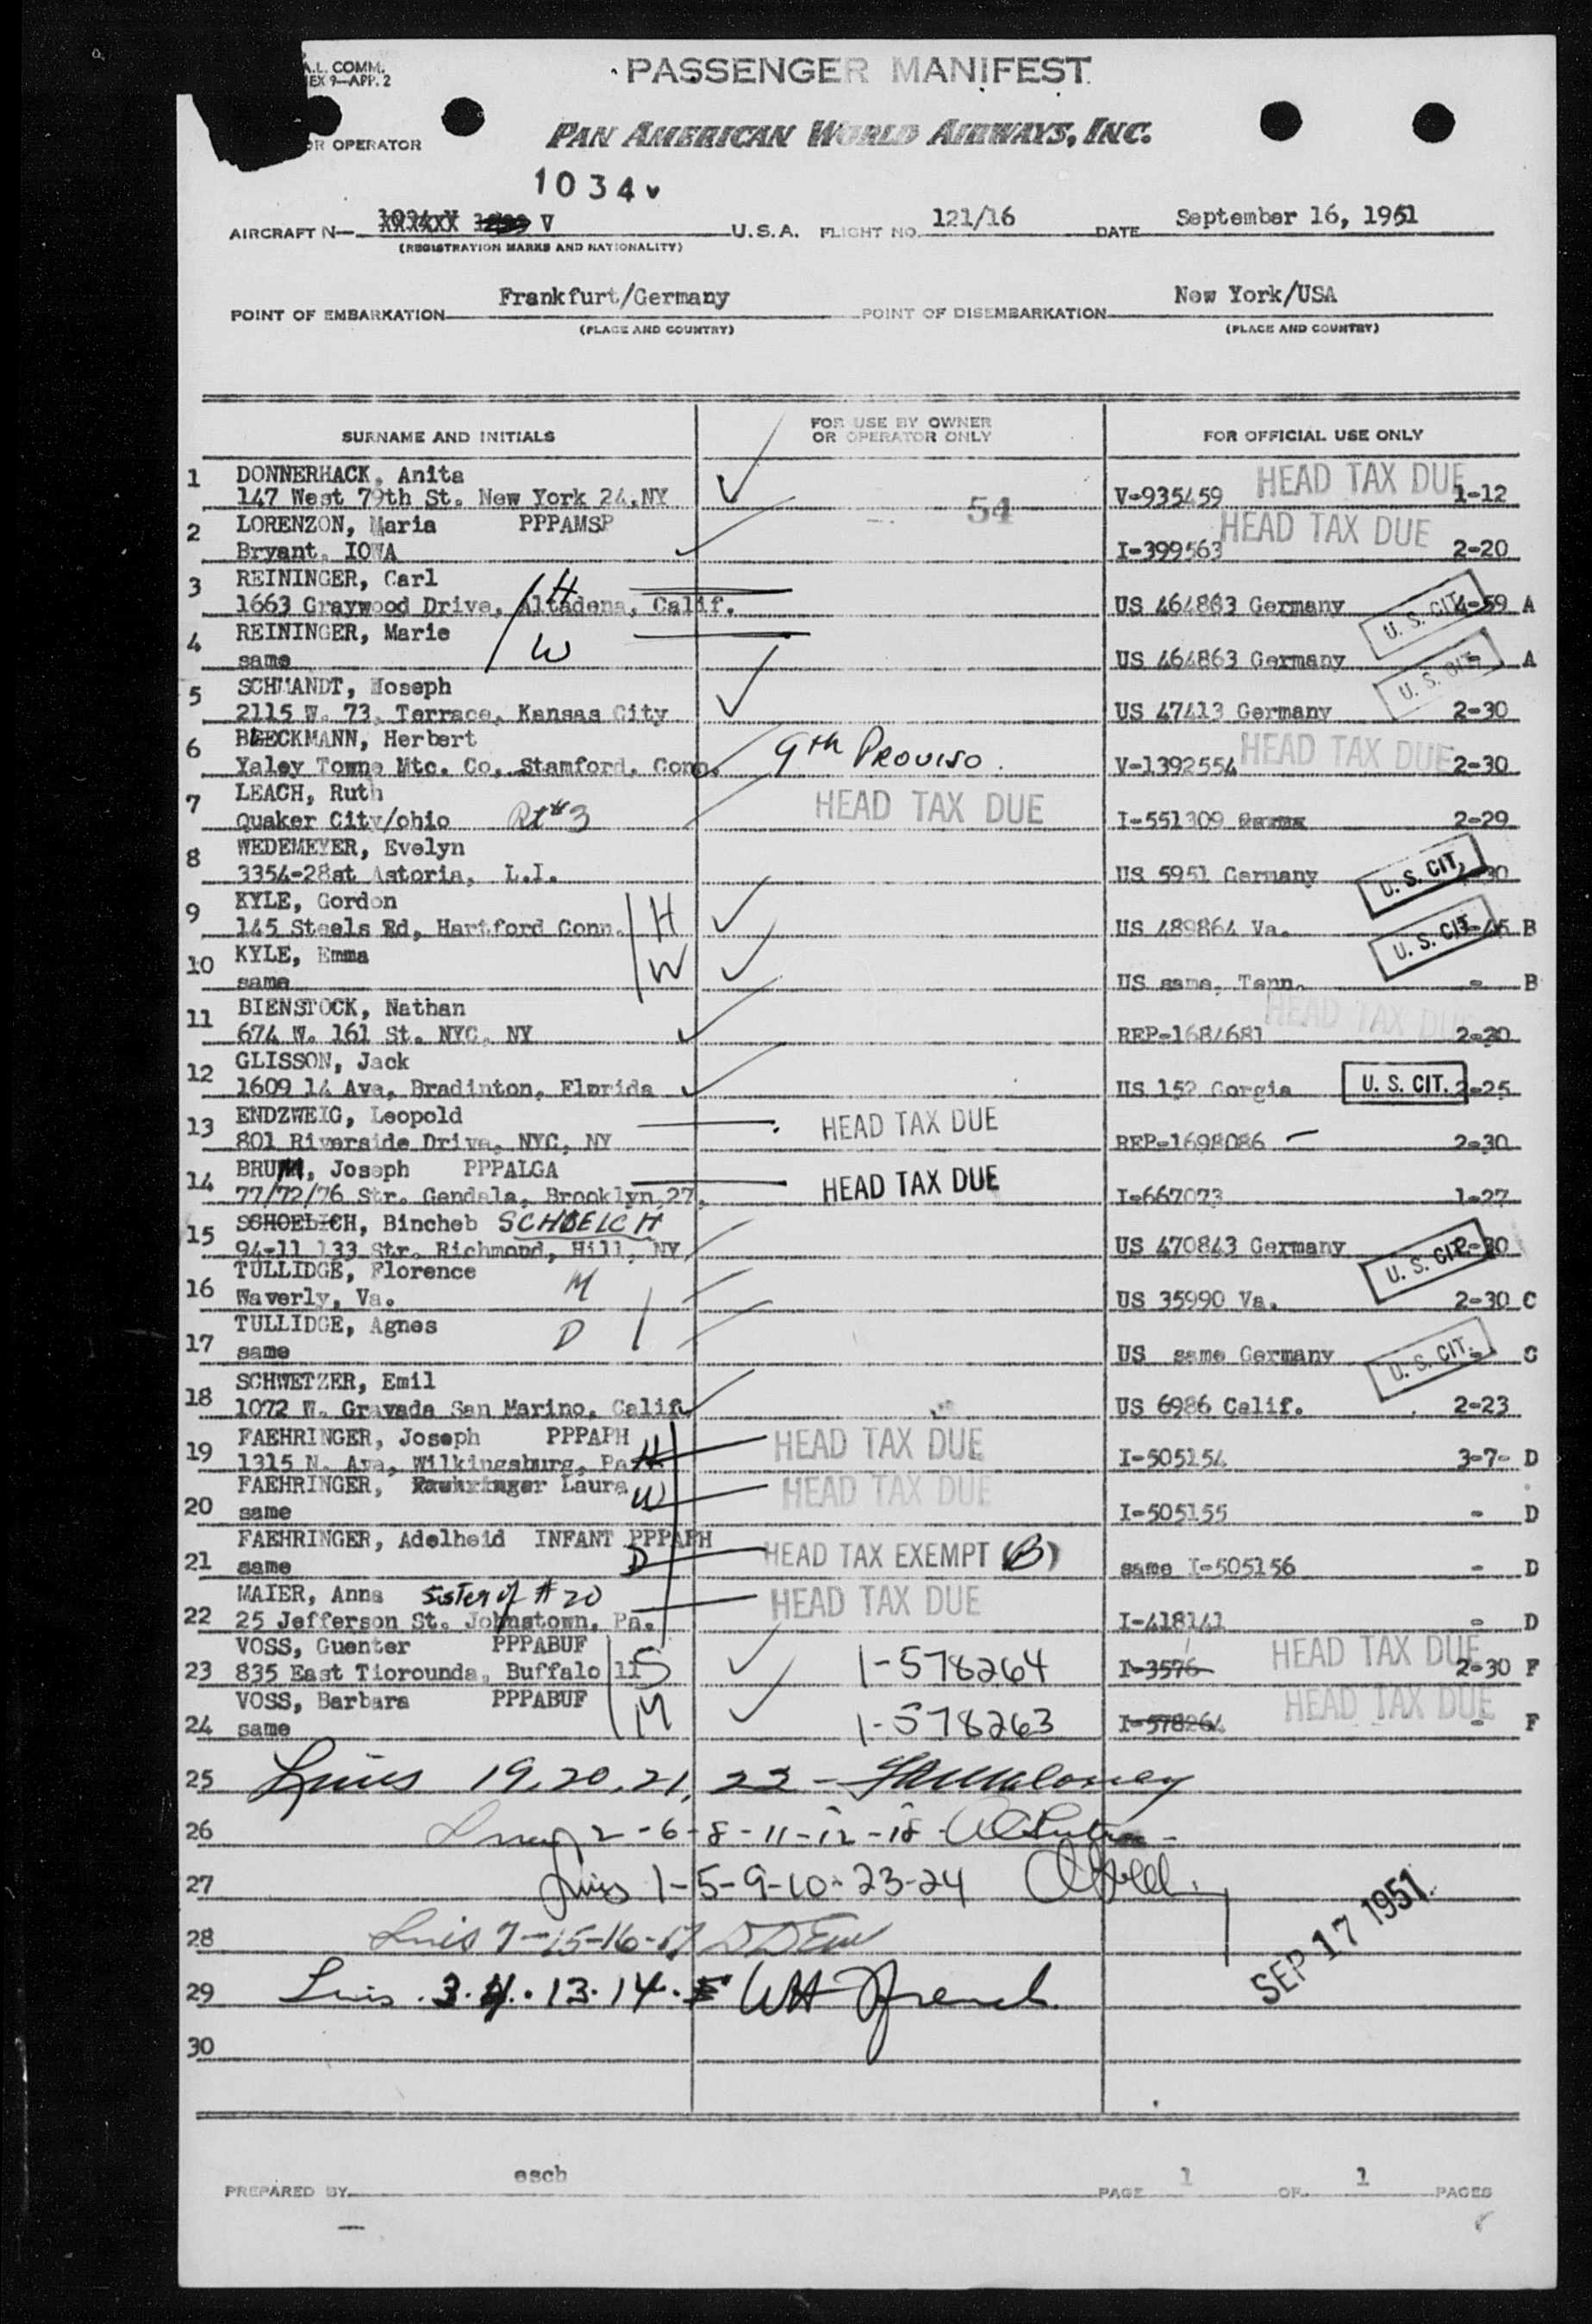 A.L. COMM.
EX 9—APP. 2
PASSENGER MANIFEST
OR OPERATOR
PAN AMERICAN WORLD AIRWAYS, INC.
1034V
AIRCRAFT N— V U.S.A. FLIGHT NO. 121/16 DATE September 16, 1951
(REGISTRATION MARKS AND NATIONALITY)
POINT OF EMBARKATION Frankfurt/Germany POINT OF DISEMBARKATION New York/USA
(PLACE AND COUNTRY) (PLACE AND COUNTRY)
SURNAME AND INITIALS FOR USE BY OWNER OR OPERATOR ONLY FOR OFFICIAL USE ONLY
1 DONNERHACK, Anita HEAD TAX DUE
147 West 79th St. New York 24,NY 54 V-935459 1-12
2 LORENZON, Maria PPPAMSP HEAD TAX DUE
Bryant, IOWA I-399563 2-20
3 REININGER, Carl H
1663 Graywood Drive, Altadena, Calif. US 464863 Germany U. S. CIT. 4-59 A
4 REININGER, Marie W
same US 464863 Germany U. S. CIT. - A
5 SCHMANDT, Joseph
2115 W. 73, Terrace, Kansas City US 47413 Germany 2-30
6 BLECKMANN, Herbert 9th PROVISO. HEAD TAX DUE
Yaley Towne Mtc. Co, Stamford, Conn. V-1392554 2-30
7 LEACH, Ruth HEAD TAX DUE
Quaker City/ohio Rt#3 I-551309 2-29
8 WEDEMEYER, Evelyn
3354-28st Astoria, L.I. US 5951 Germany U. S. CIT. 30
9 KYLE, Gordon H
145 Steels Rd, Hartford Conn. US 489864 Va. U. S. CIT. B
10 KYLE, Emma W
same US same, Tenn. - B
11 BIENSTOCK, Nathan HEAD TAX DUE
674 W. 161 St. NYC, NY REP-1684681 2-30
12 GLISSON, Jack
1609 14 Ave, Bradinton, Florida US 152 Gorgia U. S. CIT. 2-25
13 ENDZWEIG, Leopold HEAD TAX DUE
801 Riverside Drive, NYC, NY REP-1698086 2-30
14 BRUM, Joseph PPPALGA HEAD TAX DUE
77/72/76 Str. Gendale, Brooklyn 27, I-667073 1-27
15 SCHOELICH, Bincheb SCHOELCH
94-11 133 Str. Richmond, Hill, NY US 470843 Germany U. S. CIT. 2-30
16 TULLIDGE, Florence M
Waverly, Va. US 35990 Va. 2-30 C
17 TULLIDGE, Agnes D
same US same Germany U. S. CIT. - C
18 SCHWETZER, Emil
1072 W. Gravada San Marino, Calif. US 6986 Calif. 2-23
19 FAEHRINGER, Joseph PPPAPH HEAD TAX DUE
1315 N. Ave, Wilkingsburg, Pa. H I-505154 3-7- D
20 FAEHRINGER, Laura W HEAD TAX DUE
same I-505155 - D
21 FAEHRINGER, Adelheid INFANT PPPAPH HEAD TAX EXEMPT (B)
same D same I-505156 - D
22 MAIER, Anna Sister of #20 HEAD TAX DUE
25 Jefferson St. Johnstown, Pa. I-418141 - D
23 VOSS, Guenter PPPABUF HEAD TAX DUE
835 East Tiorounda, Buffalo 11 S 1-578264 I-3576 2-30 F
24 VOSS, Barbara PPPABUF HEAD TAX DUE
same M 1-578263 I-578264 - F
25 Lines 19, 20, 21, 22 -
26 2-6-8-11-12-18
27 Lines 1-5-9-10-23-24
28 Lines 7-15-16-17
29 Lines 3.4.13.14. WH French
SEP 17 1951
30
PREPARED BY esch PAGE 1 OF 1 PAGES